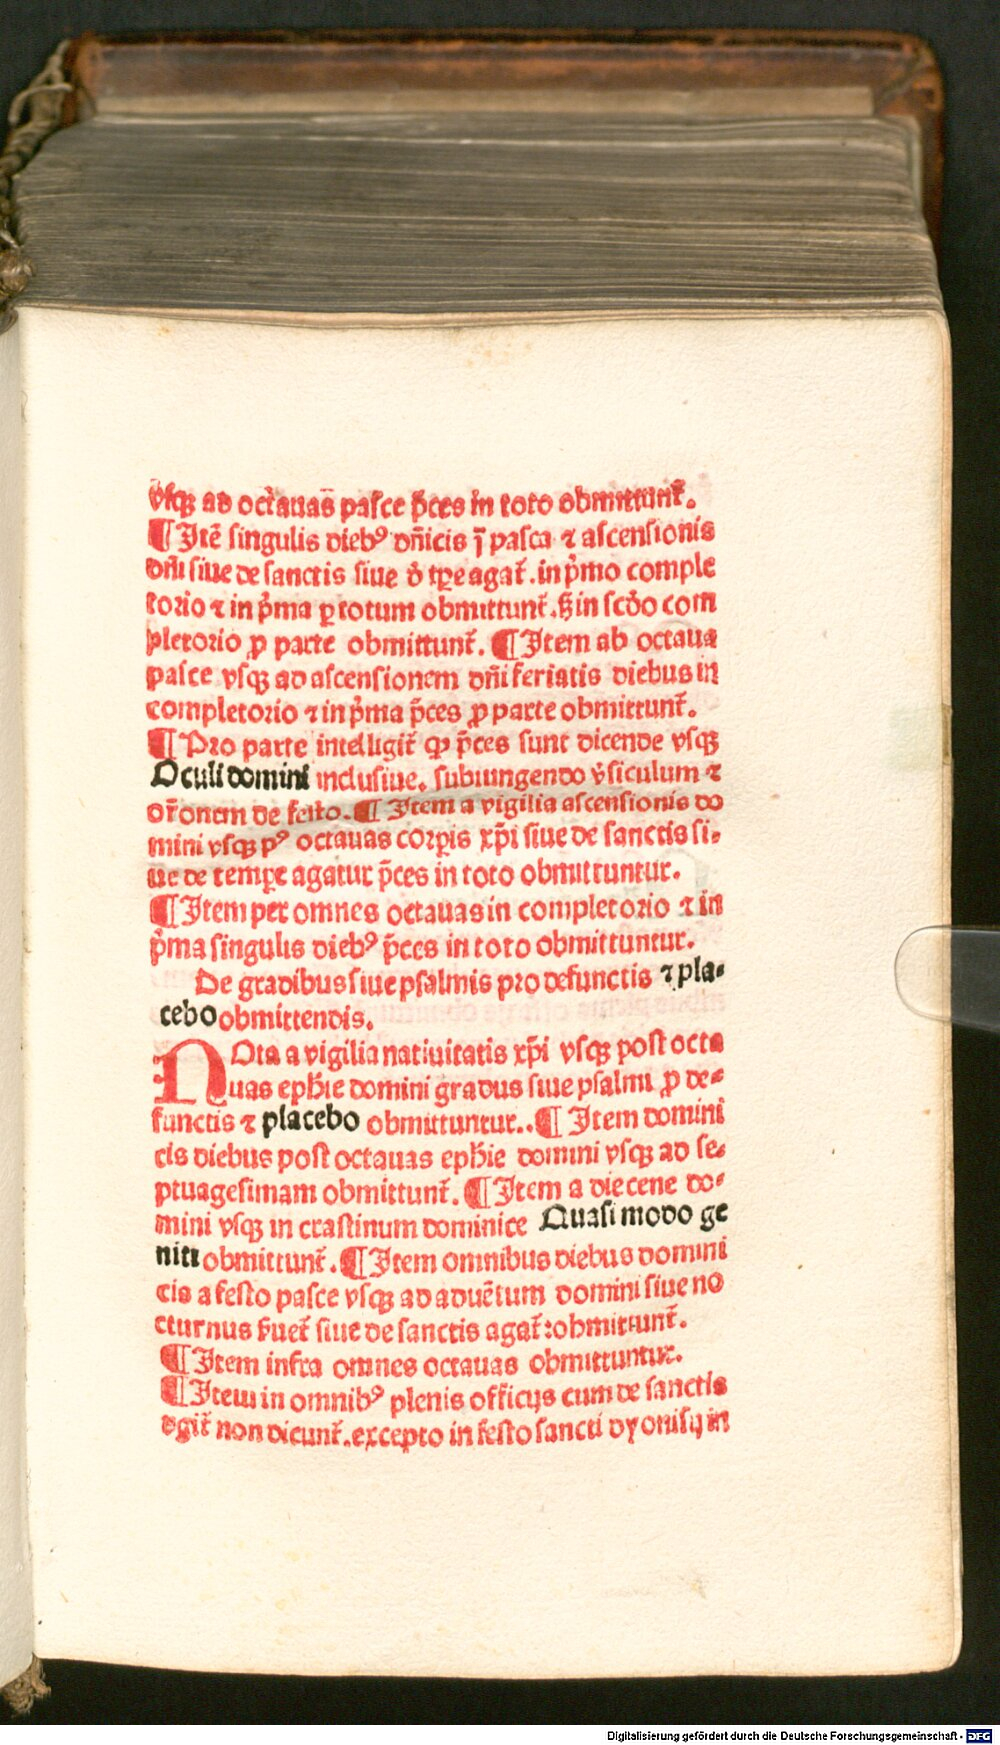 vsqꝫ ad octauas̄ pasce p̄ces in toto obmittunt᷑.
¶ Itē singulis diebꝰ dn̄icis ī pasca ⁊ ascensionis
dn̄i siue de sanctis siue d̓ tp̄e agat᷑. in p̓mo comple
torio ⁊ in p̓ma ꝑ totum obmittunt᷑. ẜ in scd̓o com
pletorio ꝓ parte obmittunt᷑. ¶ Item ab octaua
pasce vsqꝫ ad ascensionem dn̄i feriatis diebus in
completorio ⁊ in p̓ma p̄ces ꝓ parte obmittunt᷑.
¶ Pro parte intelligit᷑ qꝙ p̄ces sunt dicende vsqꝫ
Oculi domini inclusiue. subiungendo v̓siculum ⁊
or̄onem de festo. ¶ Item a vigilia ascensionis do
mini vsqꝫ pꝰ octauas corꝑis xp̄i siue de sanctis si⸗
ue de tempꝛe agatur p̄ces in toto obmittuntur.
¶ Item per omnes octauas in completorio ⁊ in
p̓ma singulis diebꝰ p̄ces in toto obmittuntur.
De gradibus siue psalmis pro defunctis ⁊ pla⸗
cebo obmittendis.
NOta a vigilia natiuitatis xp̄i vsqꝫ post octa
uas eph̄ie domini gradus siue psalmi ꝓ de⸗
functis ⁊ placebo obmittuntur.. ¶ Item domini
cis diebus post octauas eph̄ie domini vsqꝫ ad se⸗
ptuagesimam obmittunt᷑. ¶ Item a die cene do⸗
mini vsqꝫ in crastinum dominice Quasi modo ge
niti obmittunt᷑. ¶ Item omnibus diebus domini
cis a festo pasce vsqꝫ ad aduētum domini siue no
cturnus fuet᷑ siue de sanctis agat᷑: obmittunt᷑.
¶ Item infra omnes octauas obmittuntur.
¶ Item in omnibꝰ plenis officijs cum de sanctis
agit᷑ non dicunt᷑. excepto in festo sancti dyonisij in
Digitalisierung gefördert durch die Deutsche Forschungsgemeinschaft - DFG